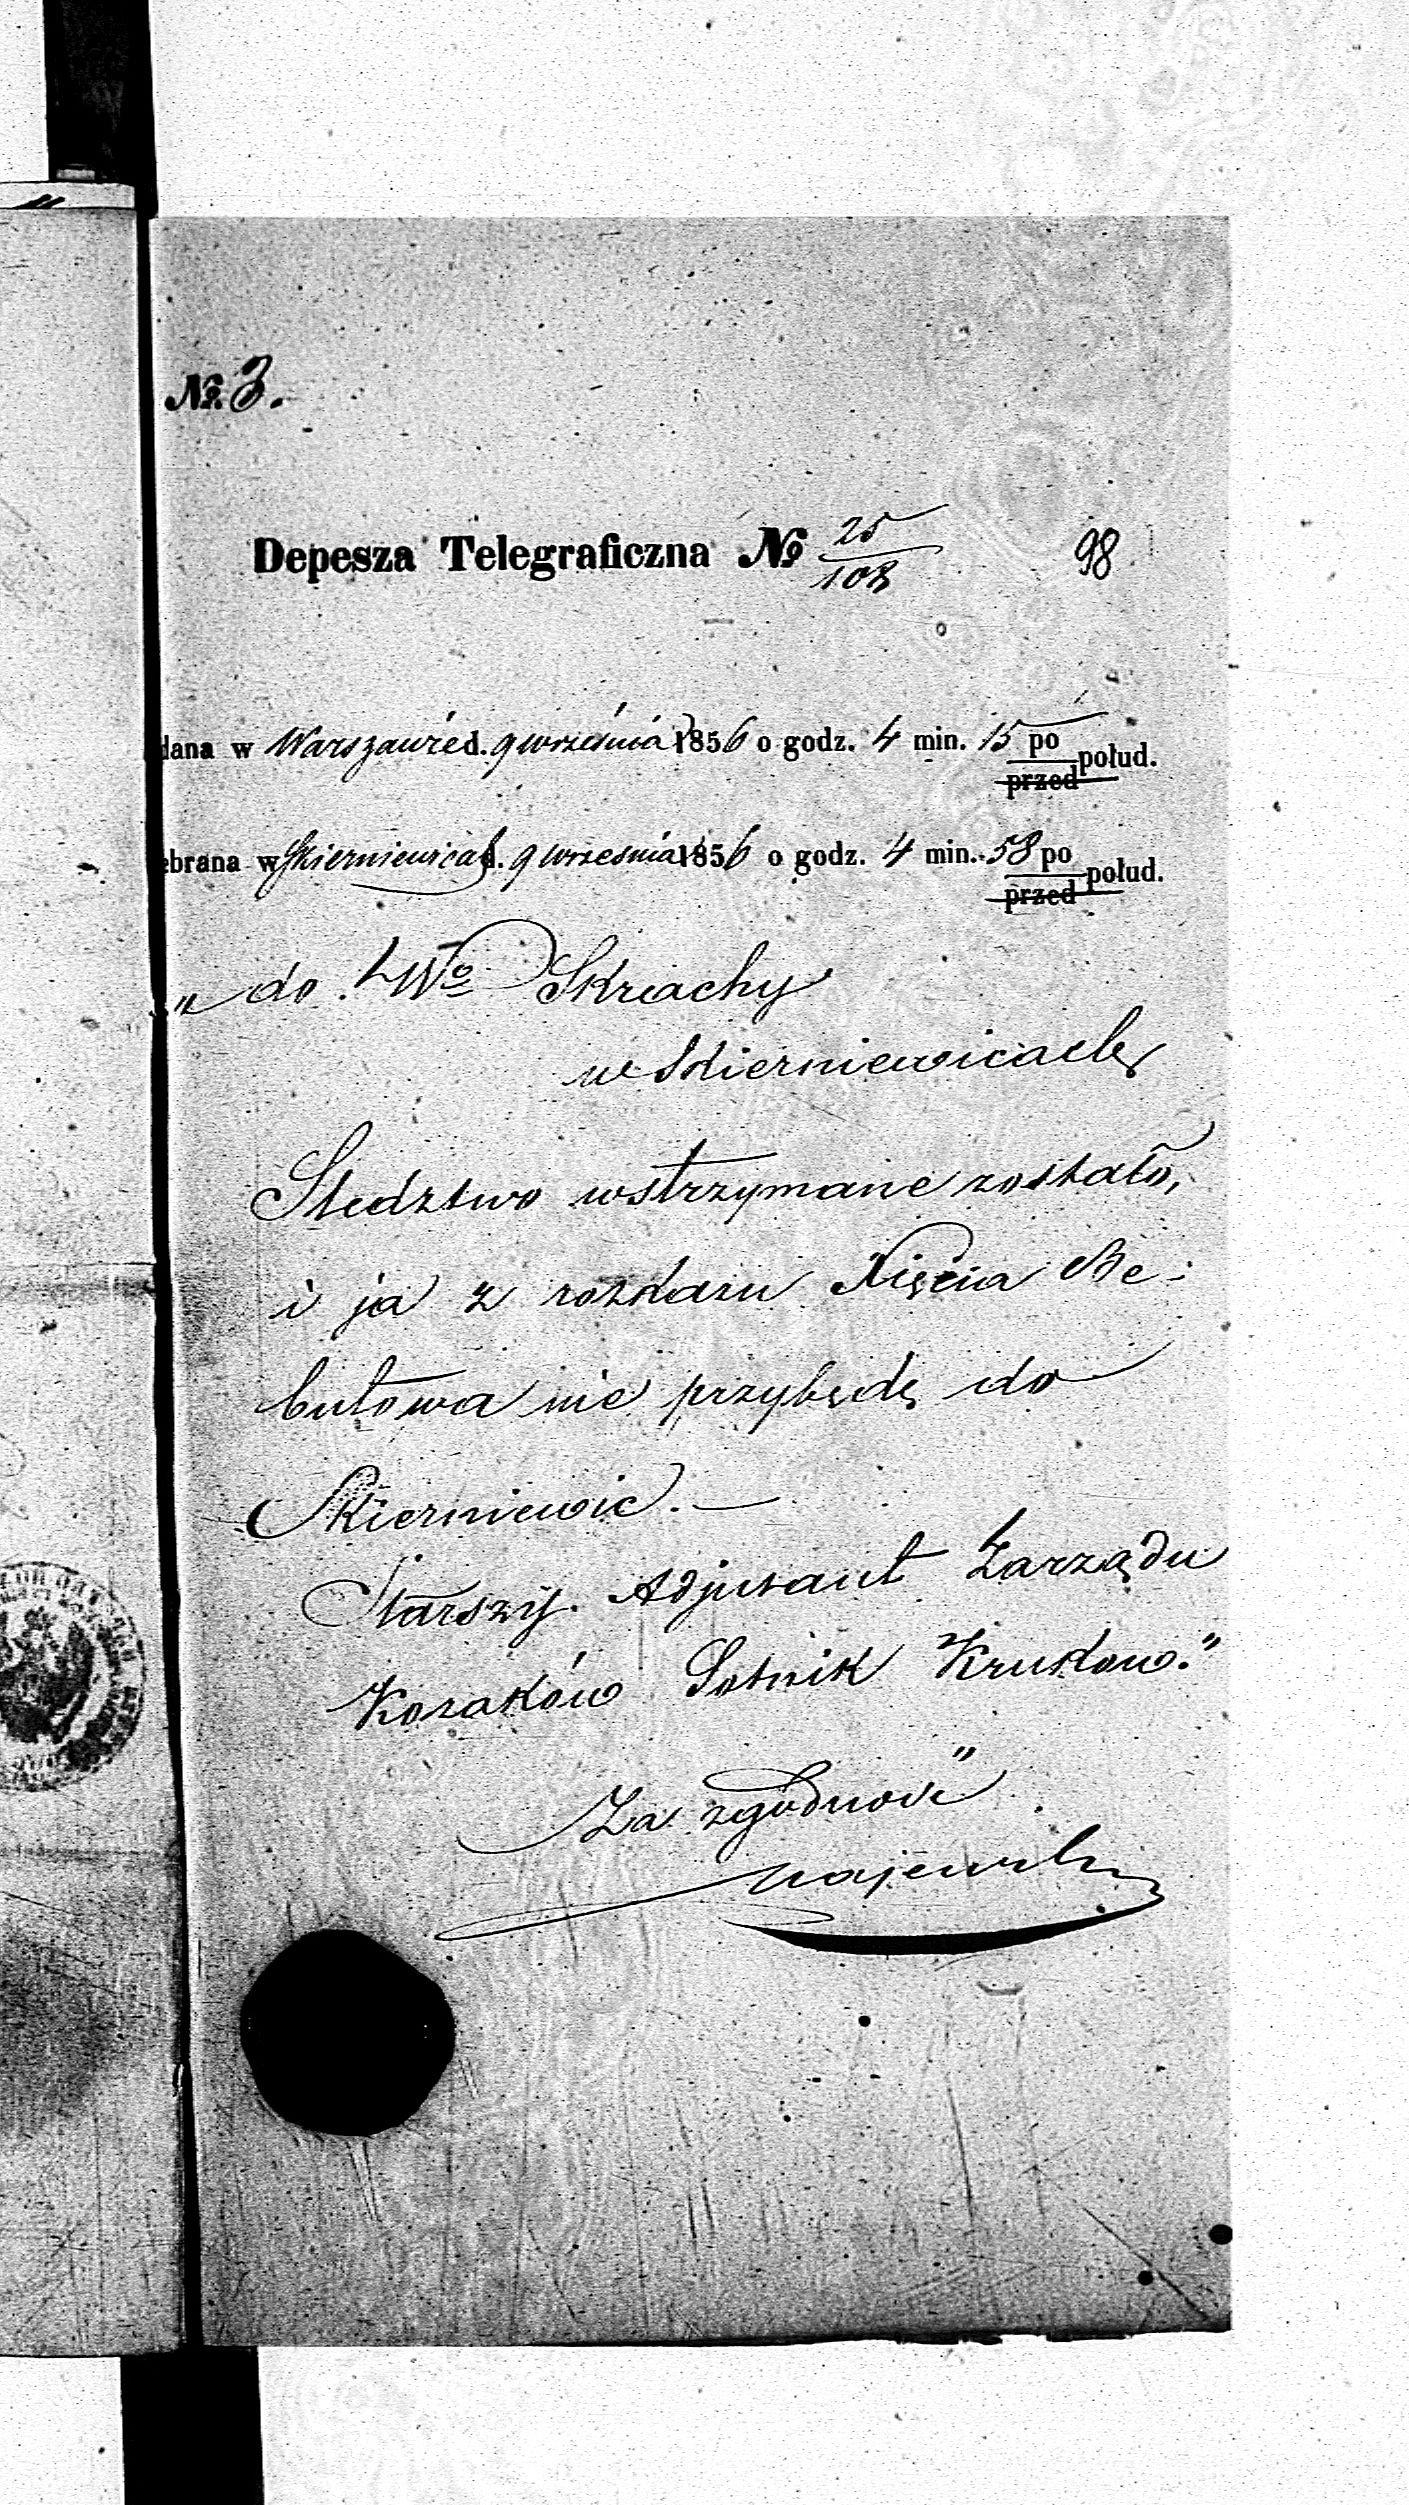 № 3.
Depesza Telegraficzna № 25/108 98
dana w Warszawie d. 9 września 1856 o godz. 4 min. 15 po przed połud.
ebrana w Skierniewicach d. 9 września 1856 o godz. 4 min. 58 po przed połud.
„ do Wo Skriachy
w Skierniewicach
Sledztwo wstrzymane zostało,
i ja z rozkazu Xięcia Be-
butowa nie przybędę do
Skierniewic. —
Starszy Adjutant Zarządu
Kozaków Sotnik Krukow."
Za zgodność